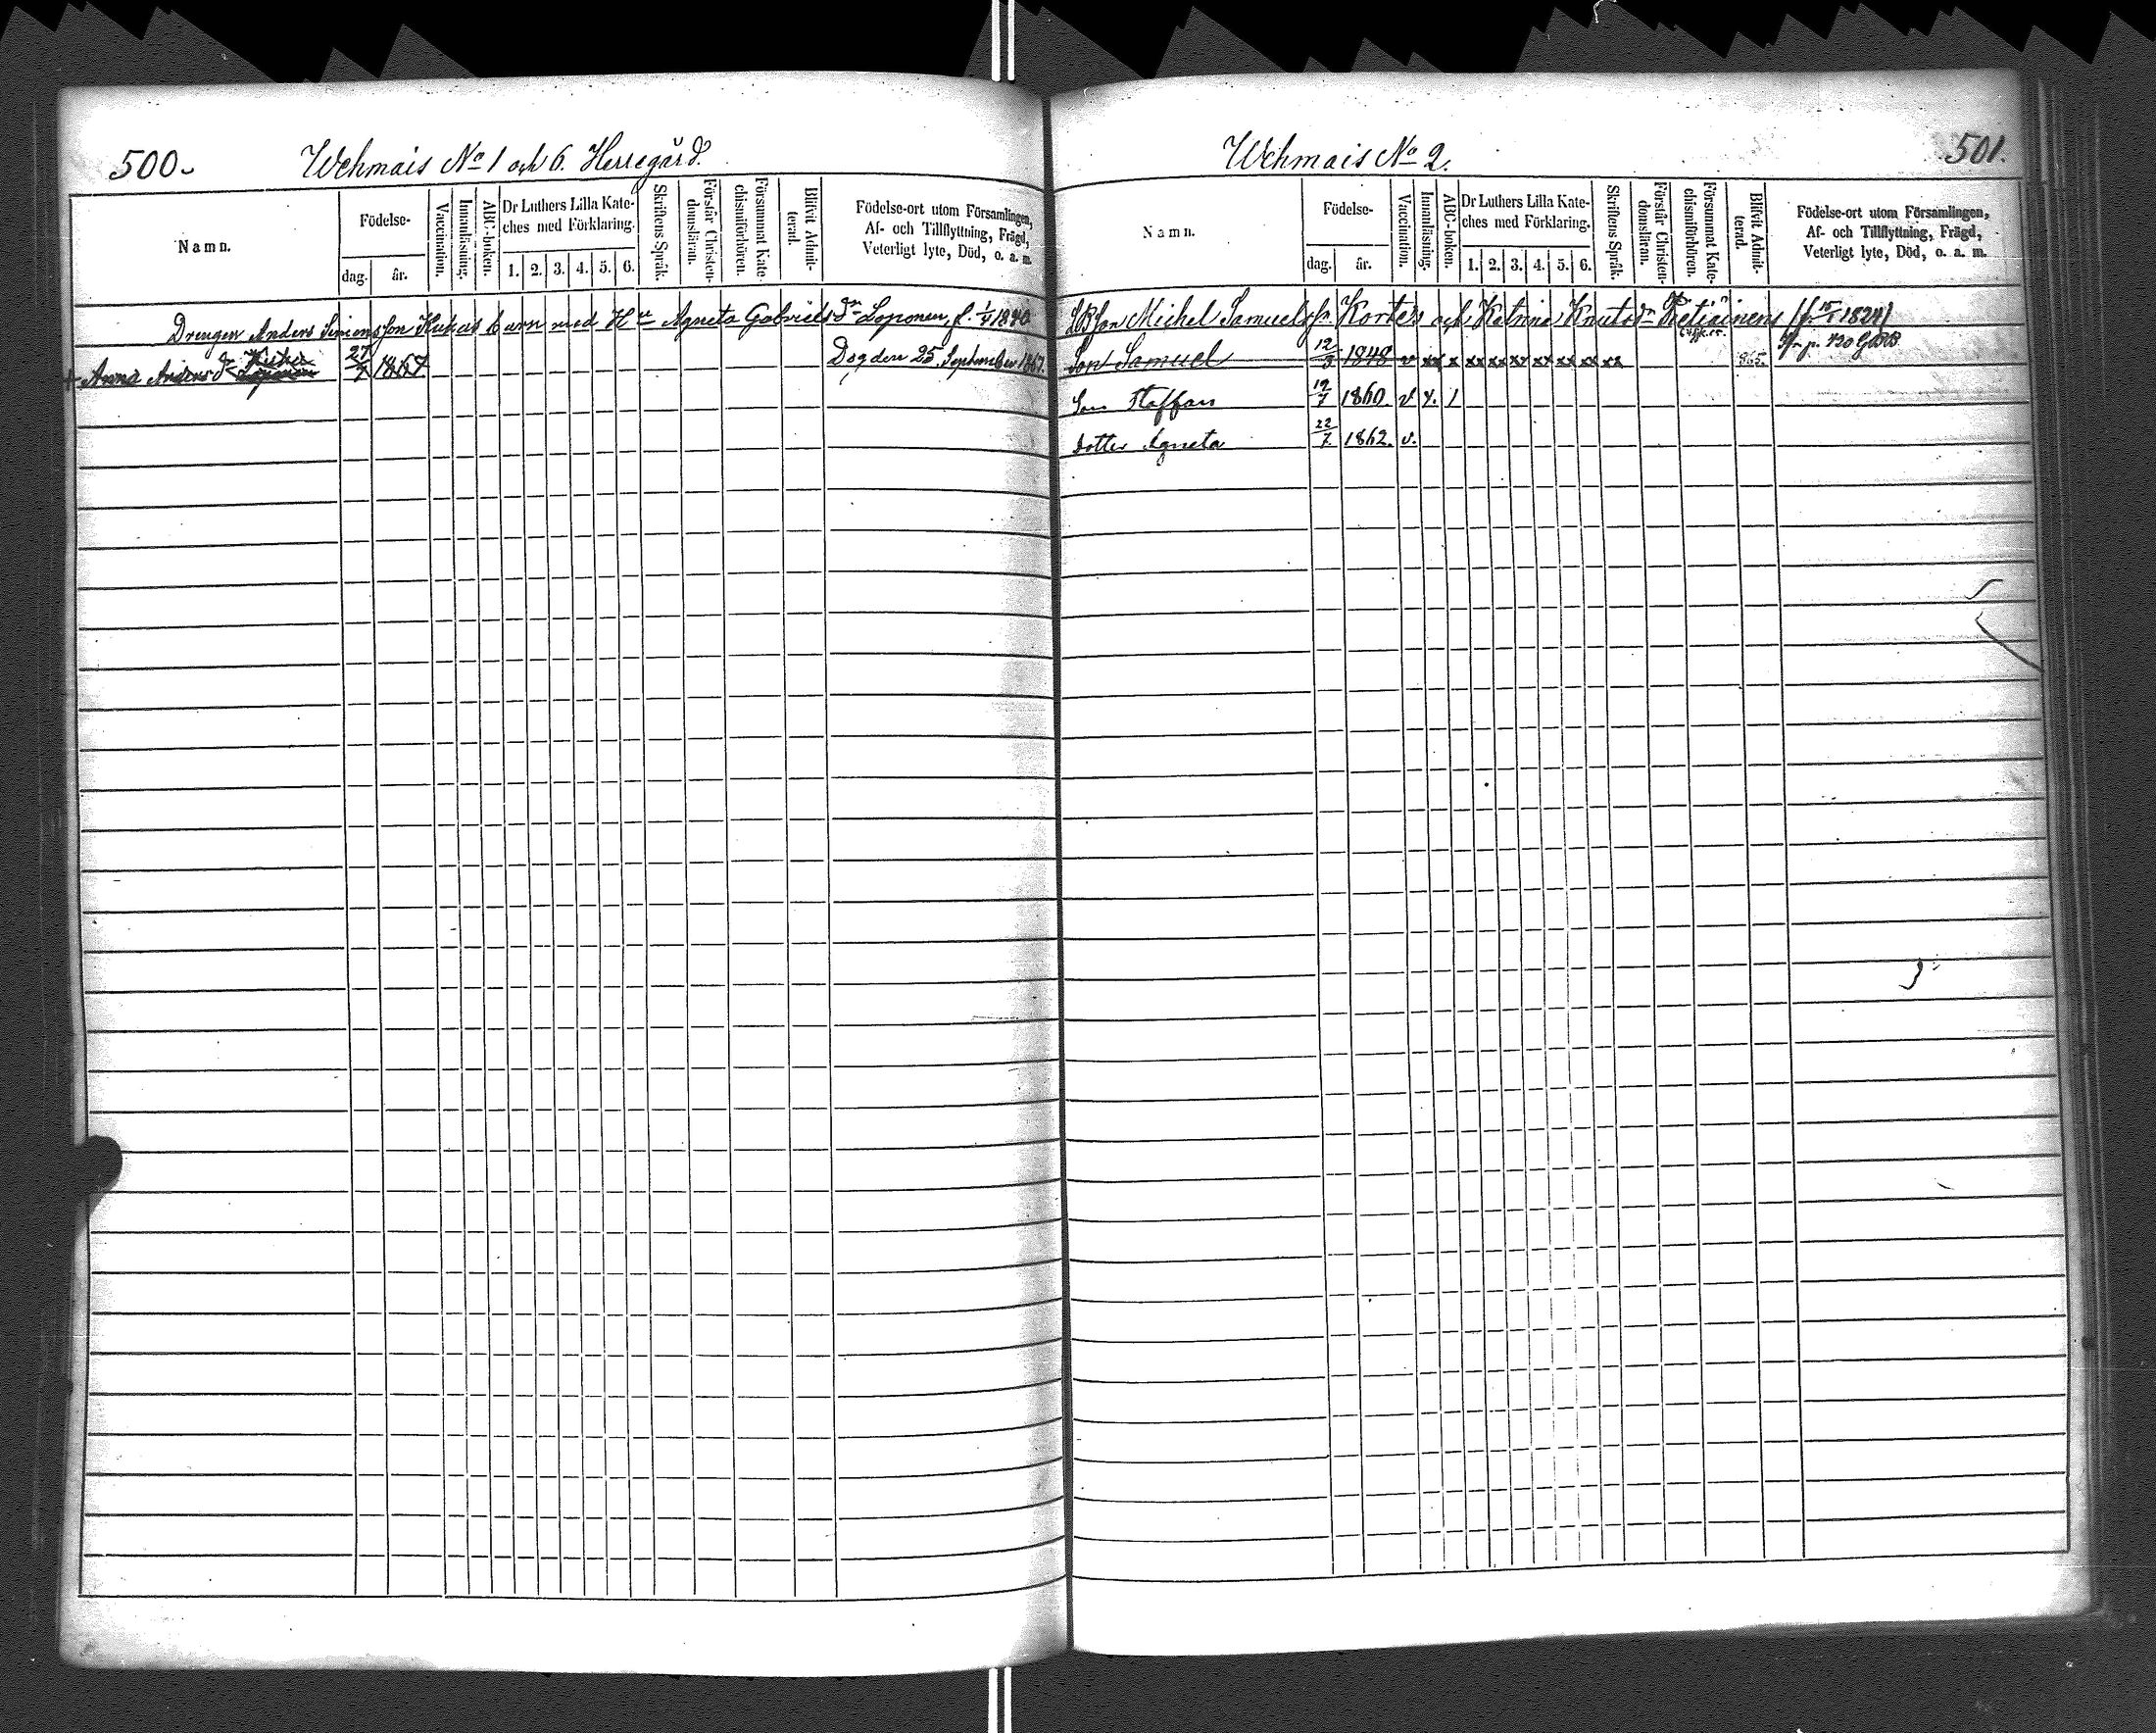 500.
Wehmais No 1 och 6. Herregård.
Namn.
Födelse-
dag.
år.
Vaccination.
Innanläsning.
ABC-boken.
Dr Luthers Lilla Kate-
ches med Förklaring.
1. 2. 3. 4. 5. 6.
Skriftens Språk.
Förstår Christen-
domsläran.
Försummat Kate-
chismiförhören.
Blifvit Admit-
terad.
Födelse-ort utom Församlingen,
Af- och Tillflyttning, Frägd,
Veterligt lyte, Död, o. a. m.
Drengen Anders Simonsson Kukas barn med Hu Agneta Gabrielsdr Loponen, f. 1/4 1840
+ Anna Andersdr 27/7 1867 Dog den 25 September 1867.
501.
Wehmais No 2.
Namn.
Födelse-
dag.
år.
Vaccination.
Innanläsning.
ABC-boken.
Dr Luthers Lilla Kate-
ches med Förklaring.
1. 2. 3. 4. 5. 6.
Skriftens Språk.
Förstår Christen-
domsläran.
Försummat Kate-
chismiförhören.
Blifvit Admit-
terad.
Födelse-ort utom Församlingen,
Af- och Tillflyttning, Frägd,
Veterligt lyte, Död, o. a. m.
Michel Samuelsson Kortes och Katrina Knutsdr Retiäinens (f. 15/1 1824)
Son Samuel 12/3 1848 v xx x xx xx xx xx xx xx xx 865.
Son Staffan 19/7 1860. v x. 1
Dotter Agneta 22/7 1862. v.